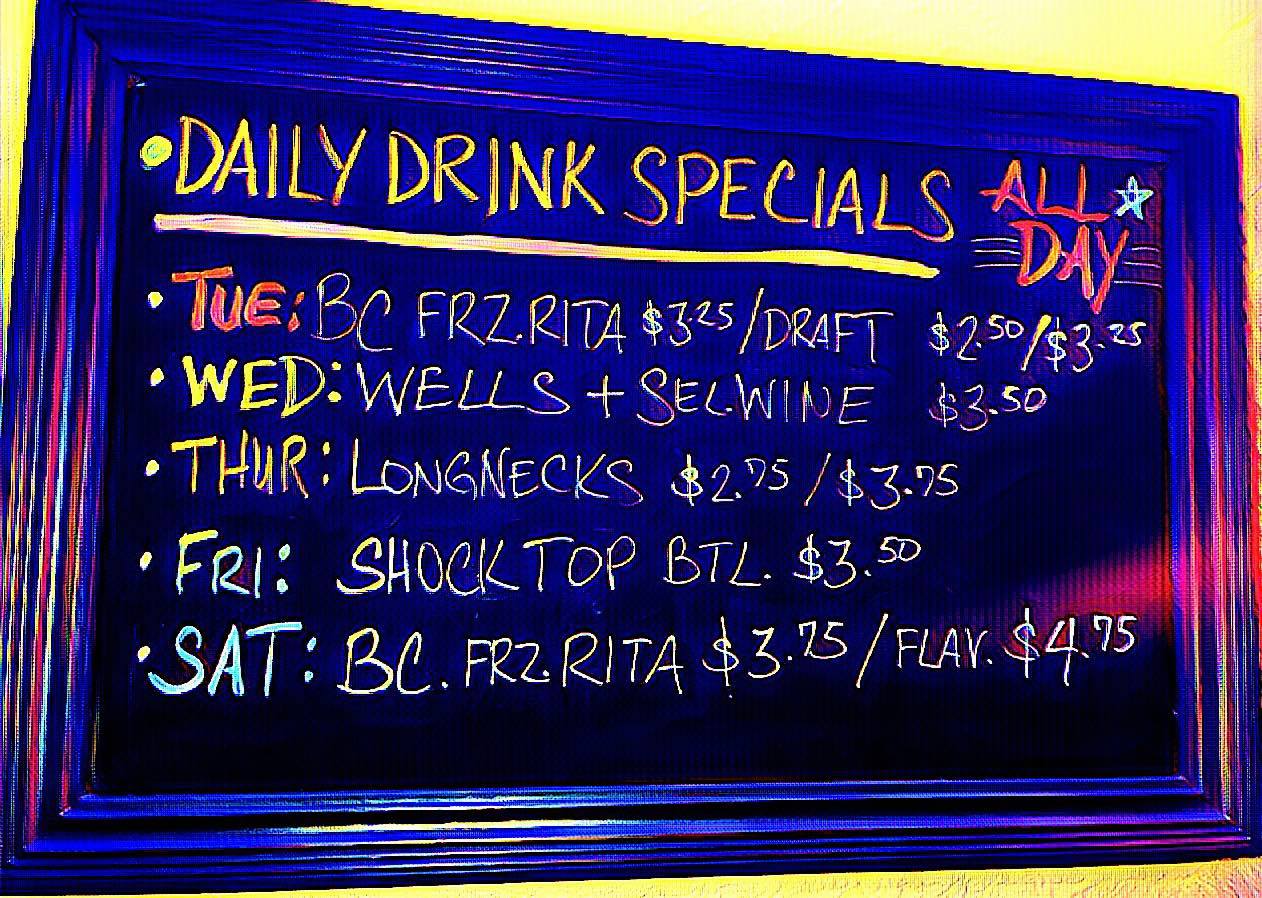 • DAILY DRINK SPECIALS ALL ☆ DAY
• TUE: BC FRZ.RITA $3.25/DRAFT $2.50/$3.25
• WED: WELLS + SEL.WINE $3.50
• THUR: LONGNECKS $2.75/$3.75
• FRI: SHOCK TOP BTL. $3.50
• SAT: BC. FRZ.RITA $3.75/FLAV. $4.75